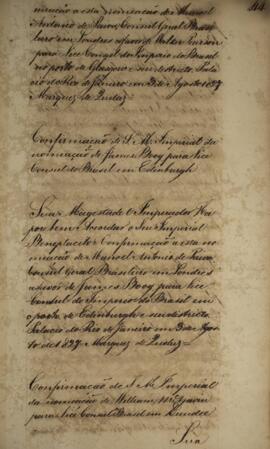 114
mação a esta nomeação de Manoel
Antonio de Paiva, Consul Geral Brasi
leiro em Londres a favor de
para Vice Consul do Imperio do Brasil
no porto de Glasgow e seu districto. Pala
cio do Rio de Janeiro em 3 de Agosto 1827
Marquez de Queluz
Confirmação de S. M. Imperial da
nomeação de James Bovy para Vice
Consul do Brasil em Edinburgh
Sua Magestade o Imperador Ha
por bem Accordar o Seu Imperial
Beneplacito e Confirmação a esta no
meação de Manoel Antonio de Paiva
Consul Geral Brasileiro em Londres
a favor de James Bovy para Vice
Consul do Imperio do Brasil em
o porto de Edinburgh e seu districto
Palacio do Rio de Janeiro em 3 de Agos
to de 1827. Marquez de Queluz
Confirmação de S. M. Imperial
da nomeação de William
para Vice Consul Brasil em Dundee
Sua